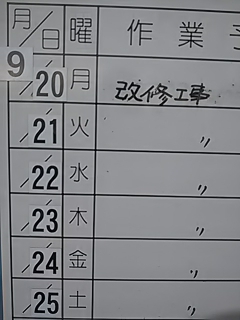 月/日 曜 作業予
9/20 月 改修工事
/21 火 〃
/22 水 〃
/23 木 〃
/24 金 〃
/25 土 〃